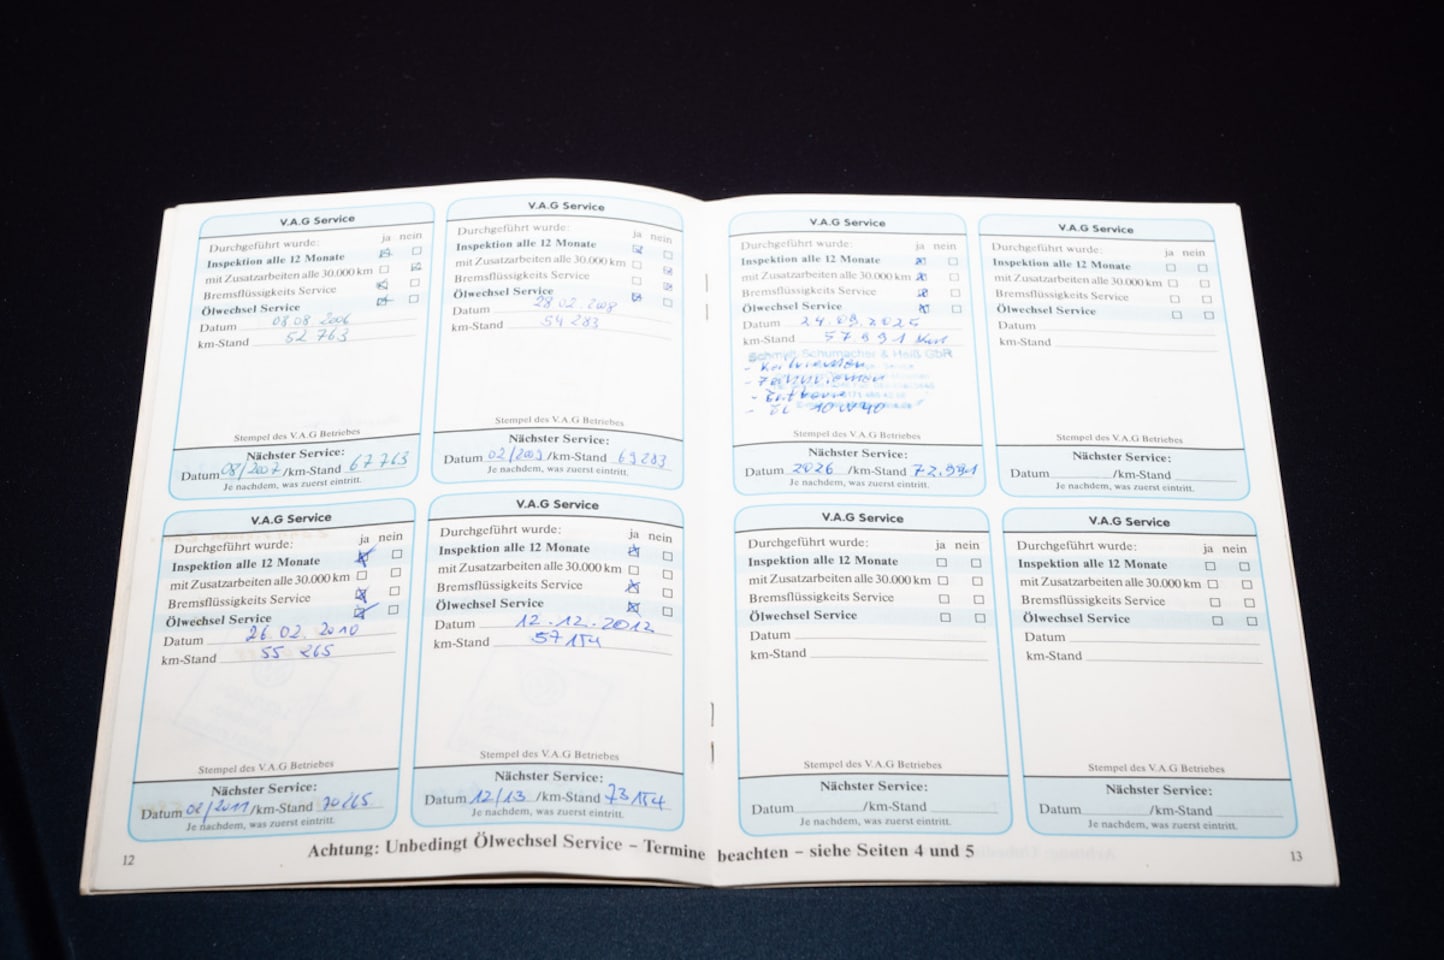 V.A.G Service
Durchgeführt wurde:
ja nein
Inspektion alle 12 Monate
mit Zusatzarbeiten alle 30.000 km
Bremsflüssigkeits Service
Ölwechsel Service
Datum 08 08. 2006
km-Stand 52 763
Stempel des V.A.G Betriebes
Nächster Service:
Datum 08/2007 /km-Stand 67763
Je nachdem, was zuerst eintritt.
V.A.G Service
Durchgeführt wurde:
ja nein
Inspektion alle 12 Monate
mit Zusatzarbeiten alle 30.000 km
Bremsflüssigkeits Service
Ölwechsel Service
Datum 28 02. 2008
km-Stand 54 283
Stempel des V.A.G Betriebes
Nächster Service:
Datum 02/2009 /km-Stand 69283
Je nachdem, was zuerst eintritt.
V.A.G Service
Durchgeführt wurde:
ja nein
Inspektion alle 12 Monate
mit Zusatzarbeiten alle 30.000 km
Bremsflüssigkeits Service
Ölwechsel Service
Datum 26 02. 2010
km-Stand 55 265
Stempel des V.A.G Betriebes
Nächster Service:
Datum 02/2011 /km-Stand 70265
Je nachdem, was zuerst eintritt.
V.A.G Service
Durchgeführt wurde:
ja nein
Inspektion alle 12 Monate
mit Zusatzarbeiten alle 30.000 km
Bremsflüssigkeits Service
Ölwechsel Service
Datum 12.12.2012
km-Stand 57154
Stempel des V.A.G Betriebes
Nächster Service:
Datum 12/13 /km-Stand 73154
Je nachdem, was zuerst eintritt.
12
V.A.G Service
Durchgeführt wurde:
ja nein
Inspektion alle 12 Monate
mit Zusatzarbeiten alle 30.000 km
Bremsflüssigkeits Service
Ölwechsel Service
Datum 24.09.2025
km-Stand 57991
Schmidt Schumacher & Heiß GbR
- Keilriemen
- Zahnriemen
- Öl 10W40
Stempel des V.A.G Betriebes
Nächster Service:
Datum 2026 /km-Stand 72.991
Je nachdem, was zuerst eintritt.
V.A.G Service
Durchgeführt wurde:
ja nein
Inspektion alle 12 Monate
mit Zusatzarbeiten alle 30.000 km
Bremsflüssigkeits Service
Ölwechsel Service
Datum
km-Stand
Stempel des V.A.G Betriebes
Nächster Service:
Datum /km-Stand
Je nachdem, was zuerst eintritt.
V.A.G Service
Durchgeführt wurde:
ja nein
Inspektion alle 12 Monate
mit Zusatzarbeiten alle 30.000 km
Bremsflüssigkeits Service
Ölwechsel Service
Datum
km-Stand
Stempel des V.A.G Betriebes
Nächster Service:
Datum /km-Stand
Je nachdem, was zuerst eintritt.
V.A.G Service
Durchgeführt wurde:
ja nein
Inspektion alle 12 Monate
mit Zusatzarbeiten alle 30.000 km
Bremsflüssigkeits Service
Ölwechsel Service
Datum
km-Stand
Stempel des V.A.G Betriebes
Nächster Service:
Datum /km-Stand
Je nachdem, was zuerst eintritt.
Achtung: Unbedingt Ölwechsel Service – Termine beachten – siehe Seiten 4 und 5
13